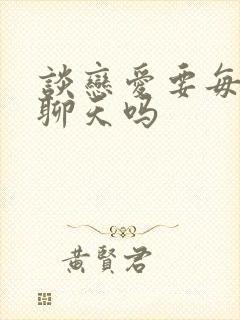 談戀愛要每
聊天吗
黃賢君